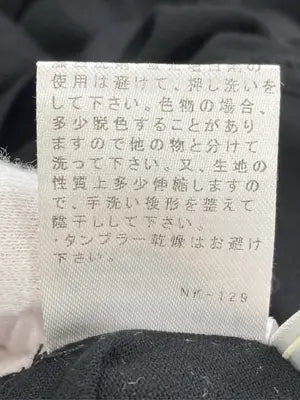 使用は避けて、押し洗いを
して下さい。色物の場合、
多少脱色することがあり
ますので他の物と分けて
洗って下さい。又、生地の
性質上多少伸縮します
ので、手洗い後形を整えて
陰干しして下さい。
・タンブラー乾燥はお避け
下さい。
NK-129